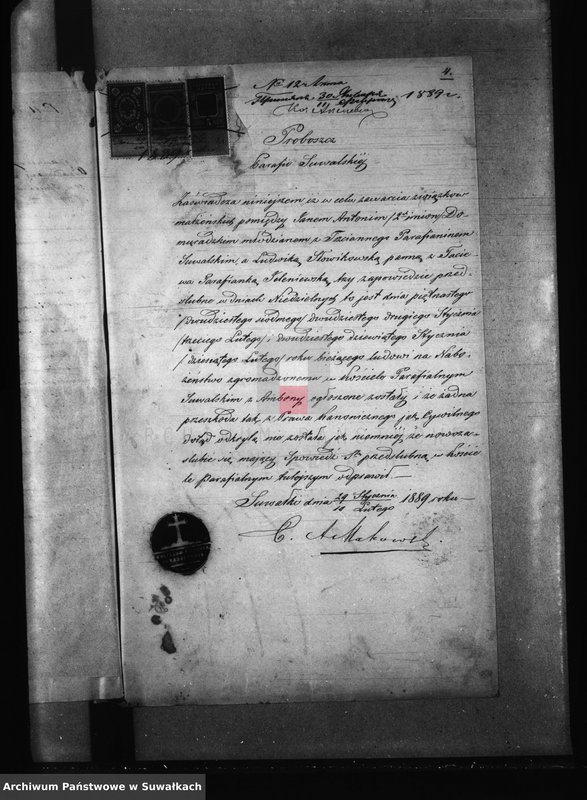 4.
No 12 Anna
1889 r.
Proboszcz
Parafii Suwalskiej
Zaświadcza niniejszem iż w celu zawarcia związków
małżeńskich pomiędzy Panem Antonim / 2ch imion / Do
młodzianem z Parafianinem
Suwalskim, a Ludwiką Słowikowską panną z
wa Parafianką Jeleniewską, trzy zapowiedzie przed-
ślubne w dniach Niedzielnych to jest dnia piętnastego
/ dwudziestego siódmego / dwudziestego drugiego Stycznia
/ trzeciego Lutego / i dwudziestego dziewiątego Stycznia
/ dziesiątego Lutego / roku bieżącego ludowi na Nabo-
żeństwo zgromadzonemu w Kościele Parafialnym
Suwalskim z Ambony ogłoszone zostały i że żadna
przeszkoda tak z Prawa Kanonicznego jak Cywilnego
dotąd odkrytą nie została jak niemniej, że nowoza-
ślubić się mający Spowiedź Stą przedślubną w Koście-
le Parafialnym tutejszym odprawił. —
Suwałki dnia 29 Stycznia / 10 Lutego 1889 roku —
Archiwum Państwowe w Suwałkach